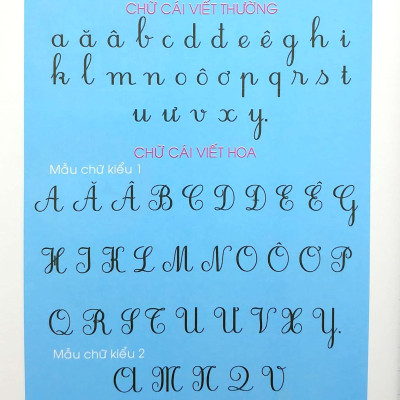 CHỮ CÁI VIẾT THƯỜNG
a ă â b c d đ e ê g h i
k l m n o ô ơ p q r s t
u ư v x y.
CHỮ CÁI VIẾT HOA
Mẫu chữ kiểu 1
A Ă Â B C D Đ E Ê G
H I K L M N O Ô Ơ P
Q R S T U Ư V X Y.
Mẫu chữ kiểu 2
A M N Q V